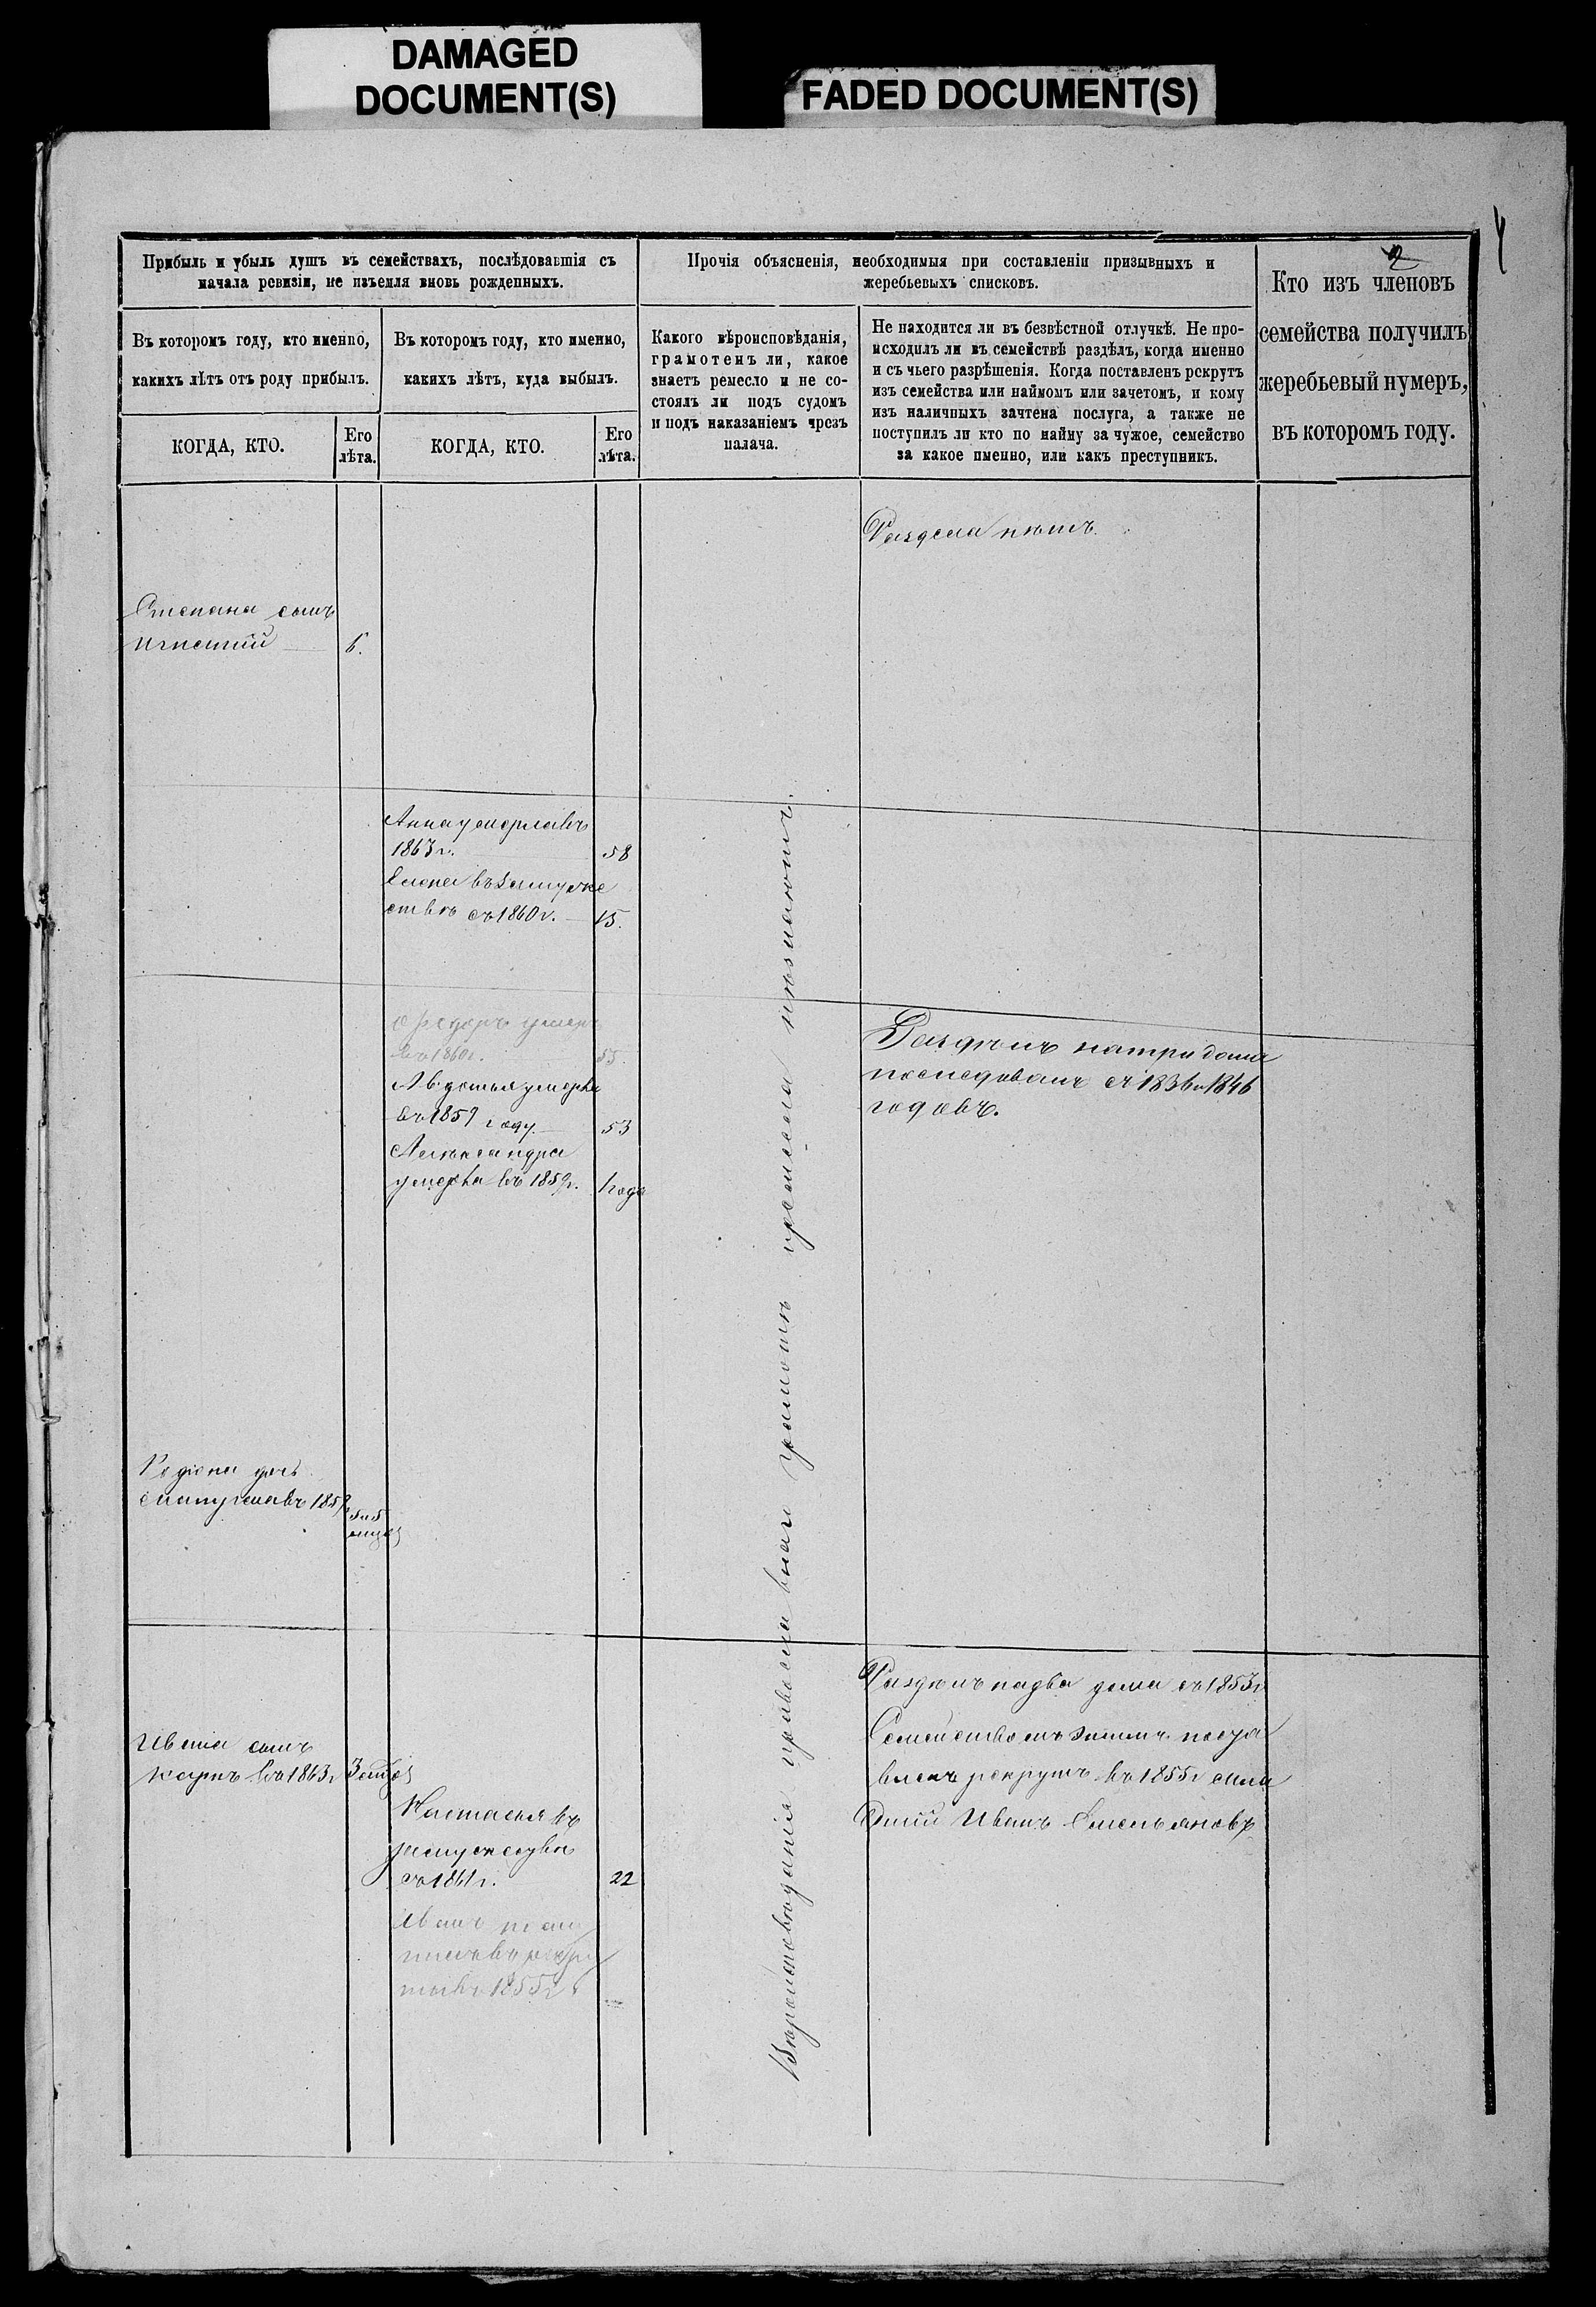 DAMAGED
DOCUMENT(S)
FADED DOCUMENT(S)
Прибыль и убыль душъ въ семействахъ, послѣдовавшія съ
начала ревизіи, не изъемля вновь рожденныхъ.
Въ которомъ году, кто именно,
какихъ лѣтъ отъ роду прибылъ.
КОГДА, КТО.
Его
лѣта.
Въ которомъ году, кто именно,
какихъ лѣтъ, куда выбылъ.
КОГДА, КТО.
Его
лѣта.
Прочія объясненія, необходимыя при составленіи призывныхъ и
жеребьевыхъ списковъ.
Какого вѣроисповѣданія,
грамотенъ ли, какое
знаетъ ремесло и не со-
стоялъ ли подъ судомъ
и подъ наказаніемъ чрезъ
палача.
Не находится ли въ безвѣстной отлучкѣ. Не про-
исходилъ ли въ семействѣ раздѣлъ, когда именно
и съ чьего разрѣшенія. Когда поставленъ рекрутъ
изъ семейства или наймомъ или зачетомъ, и кому
изъ наличныхъ зачтена послуга, а также не
поступилъ ли кто по найму за чужое, семейство
за какое именно, или какъ преступникъ.
2
Кто изъ членовъ
семейства получилъ
жеребьевый нумеръ,
въ которомъ году.
Раздела нѣтъ.
Степана сынъ
Игнатій 6.
Анна умерла въ
1863 г. 58
Елена въ замуже
ствѣ съ 1860 г. 15.
Ѳедоръ умеръ
въ 1860 г. 55.
Авдотья умерла
въ 1859 году. 53
Александра
умерла въ 1859 г. 1 года
Раздѣлъ на три дома
последовалъ съ 1836 и 1846
годовъ.
Родіона дочь
въ 1859
5
Раздѣлъ на два дома съ 1853 г
Семействомъ этимъ поста
вленъ рекрутъ въ 1855 г
Иванъ Емельяновъ
Ивана сынъ
Карпъ въ 1863 г
Настасья въ
замужествѣ
съ 1861 г. 22
Иванъ
въ рекру
ты въ 1855 г
Вѣроисповѣданія православнаго грамотѣ ремесла незнаютъ.